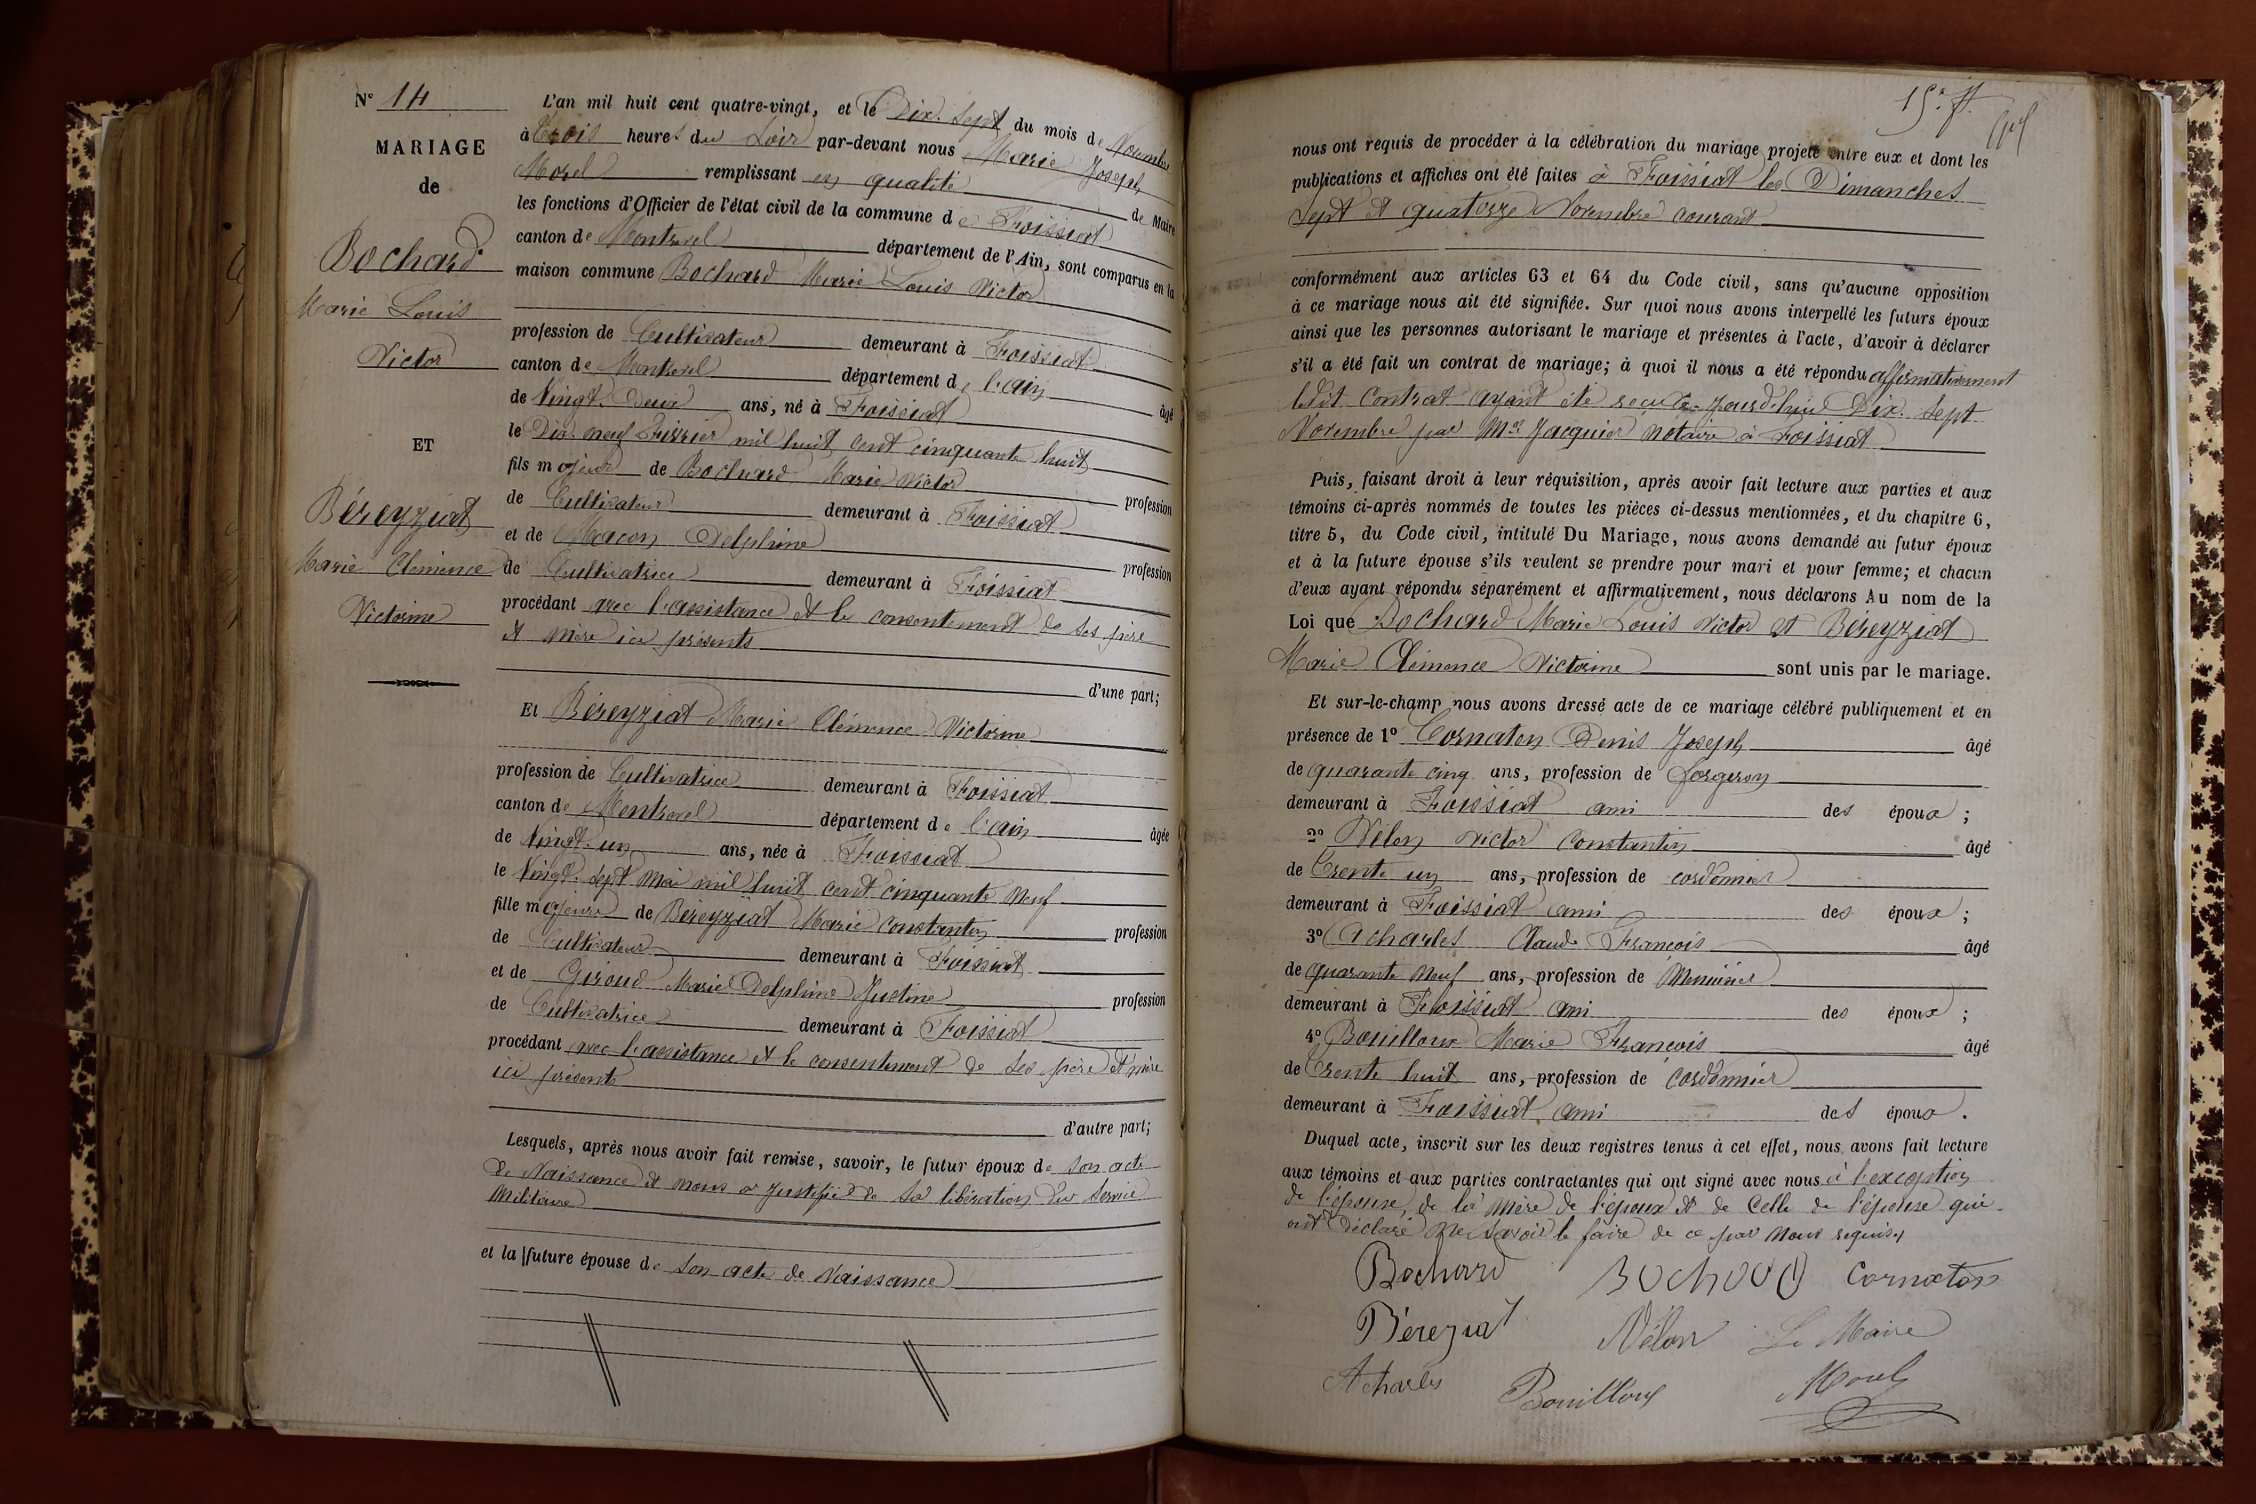 N° 14
MARIAGE
de
Bochard
Marie Louis
Victor
ET
Béreyziat
Marie Clémence
Victorine
L'an mil huit cent quatre-vingt, et le Dix-Sept du mois de Novembre
à Trois heures du Soir par-devant nous Marie Joseph
Morel remplissant en qualité de Maire
les fonctions d'Officier de l'état civil de la commune de Foissiat
canton de Montrevel département de l'Ain, sont comparus en la
maison commune Bochard Marie Louis Victor
profession de Cultivateur demeurant à Foissiat
canton de Montrevel département de l'ain âgé
de Vingt-Deux ans, né à Foissiat
le Dix neuf Février mil huit cent cinquante huit
fils majeur de Bochard Marie Victor profession
de Cultivateur demeurant à Foissiat
et de Macon Delphine profession
de Cultivatrice demeurant à Foissiat
procédant avec l'assistance et le consentement de ses père
et mère ici présents
d'une part;
Et Béreyziat Marie Clémence Victorine
profession de Cultivatrice demeurant à Foissiat
canton de Montrevel département de l'ain âgée
de Vingt-un ans, née à Foissiat
le Vingt-Sept Mai mil huit cent cinquante Neuf
fille majeure de Béreyziat Marie Constantin profession
de Cultivateur demeurant à Foissiat
et de Giroud Marie Delphine Justine profession
de Cultivatrice demeurant à Foissiat
procédant avec l'assistance et le consentement de ses père et mère
ici présents
d'autre part;
Lesquels, après nous avoir fait remise, savoir, le futur époux de son acte
de Naissance et nous a justifié de sa libération du service
Militaire
et la future épouse de son acte de Naissance
nous ont requis de procéder à la célébration du mariage projeté entre eux et dont les
publications et affiches ont été faites à Foissiat les Dimanches
Sept et quatorze Novembre courant
conformément aux articles 63 et 64 du Code civil, sans qu'aucune opposition
à ce mariage nous ait été signifiée. Sur quoi nous avons interpellé les futurs époux
ainsi que les personnes autorisant le mariage et présentes à l'acte, d'avoir à déclarer
s'il a été fait un contrat de mariage; à quoi il nous a été répondu affirmativement
ledit contrat ayant été reçu ce-jourd'hui Dix-Sept
Novembre par Me Jacquier Notaire à Foissiat
Puis, faisant droit à leur réquisition, après avoir fait lecture aux parties et aux
témoins ci-après nommés de toutes les pièces ci-dessus mentionnées, et du chapitre 6,
titre 5, du Code civil, intitulé Du Mariage, nous avons demandé au futur époux
et à la future épouse s'ils veulent se prendre pour mari et pour femme; et chacun
d'eux ayant répondu séparément et affirmativement, nous déclarons Au nom de la
Loi que Bochard Marie Louis Victor et Béreyziat
Marie Clémence Victorine sont unis par le mariage.
Et sur-le-champ nous avons dressé acte de ce mariage célébré publiquement et en
présence de 1° Cornaton Denis Joseph âgé
de quarante cinq ans, profession de forgeron
demeurant à Foissiat ami des époux ;
2° Vélon Victor Constantin âgé
de Trente un ans, profession de cordonnier
demeurant à Foissiat ami des époux ;
3° Acharles Claude François âgé
de quarante Neuf ans, profession de Menuisier
demeurant à Foissiat ami des époux ;
4° Bouilloux Marie François âgé
de Trente huit ans, profession de cordonnier
demeurant à Foissiat ami des époux .
Duquel acte, inscrit sur les deux registres tenus à cet effet, nous avons fait lecture
aux témoins et aux parties contractantes qui ont signé avec nous à l'exception
de l'épouse, de la mère de l'époux et de celle de l'épouse qui
ont déclaré ne savoir le faire de ce par nous requis
Bochard Bochard Cornaton
Béreziat Vélon Le Maire
Acharles Bouilloux Morel